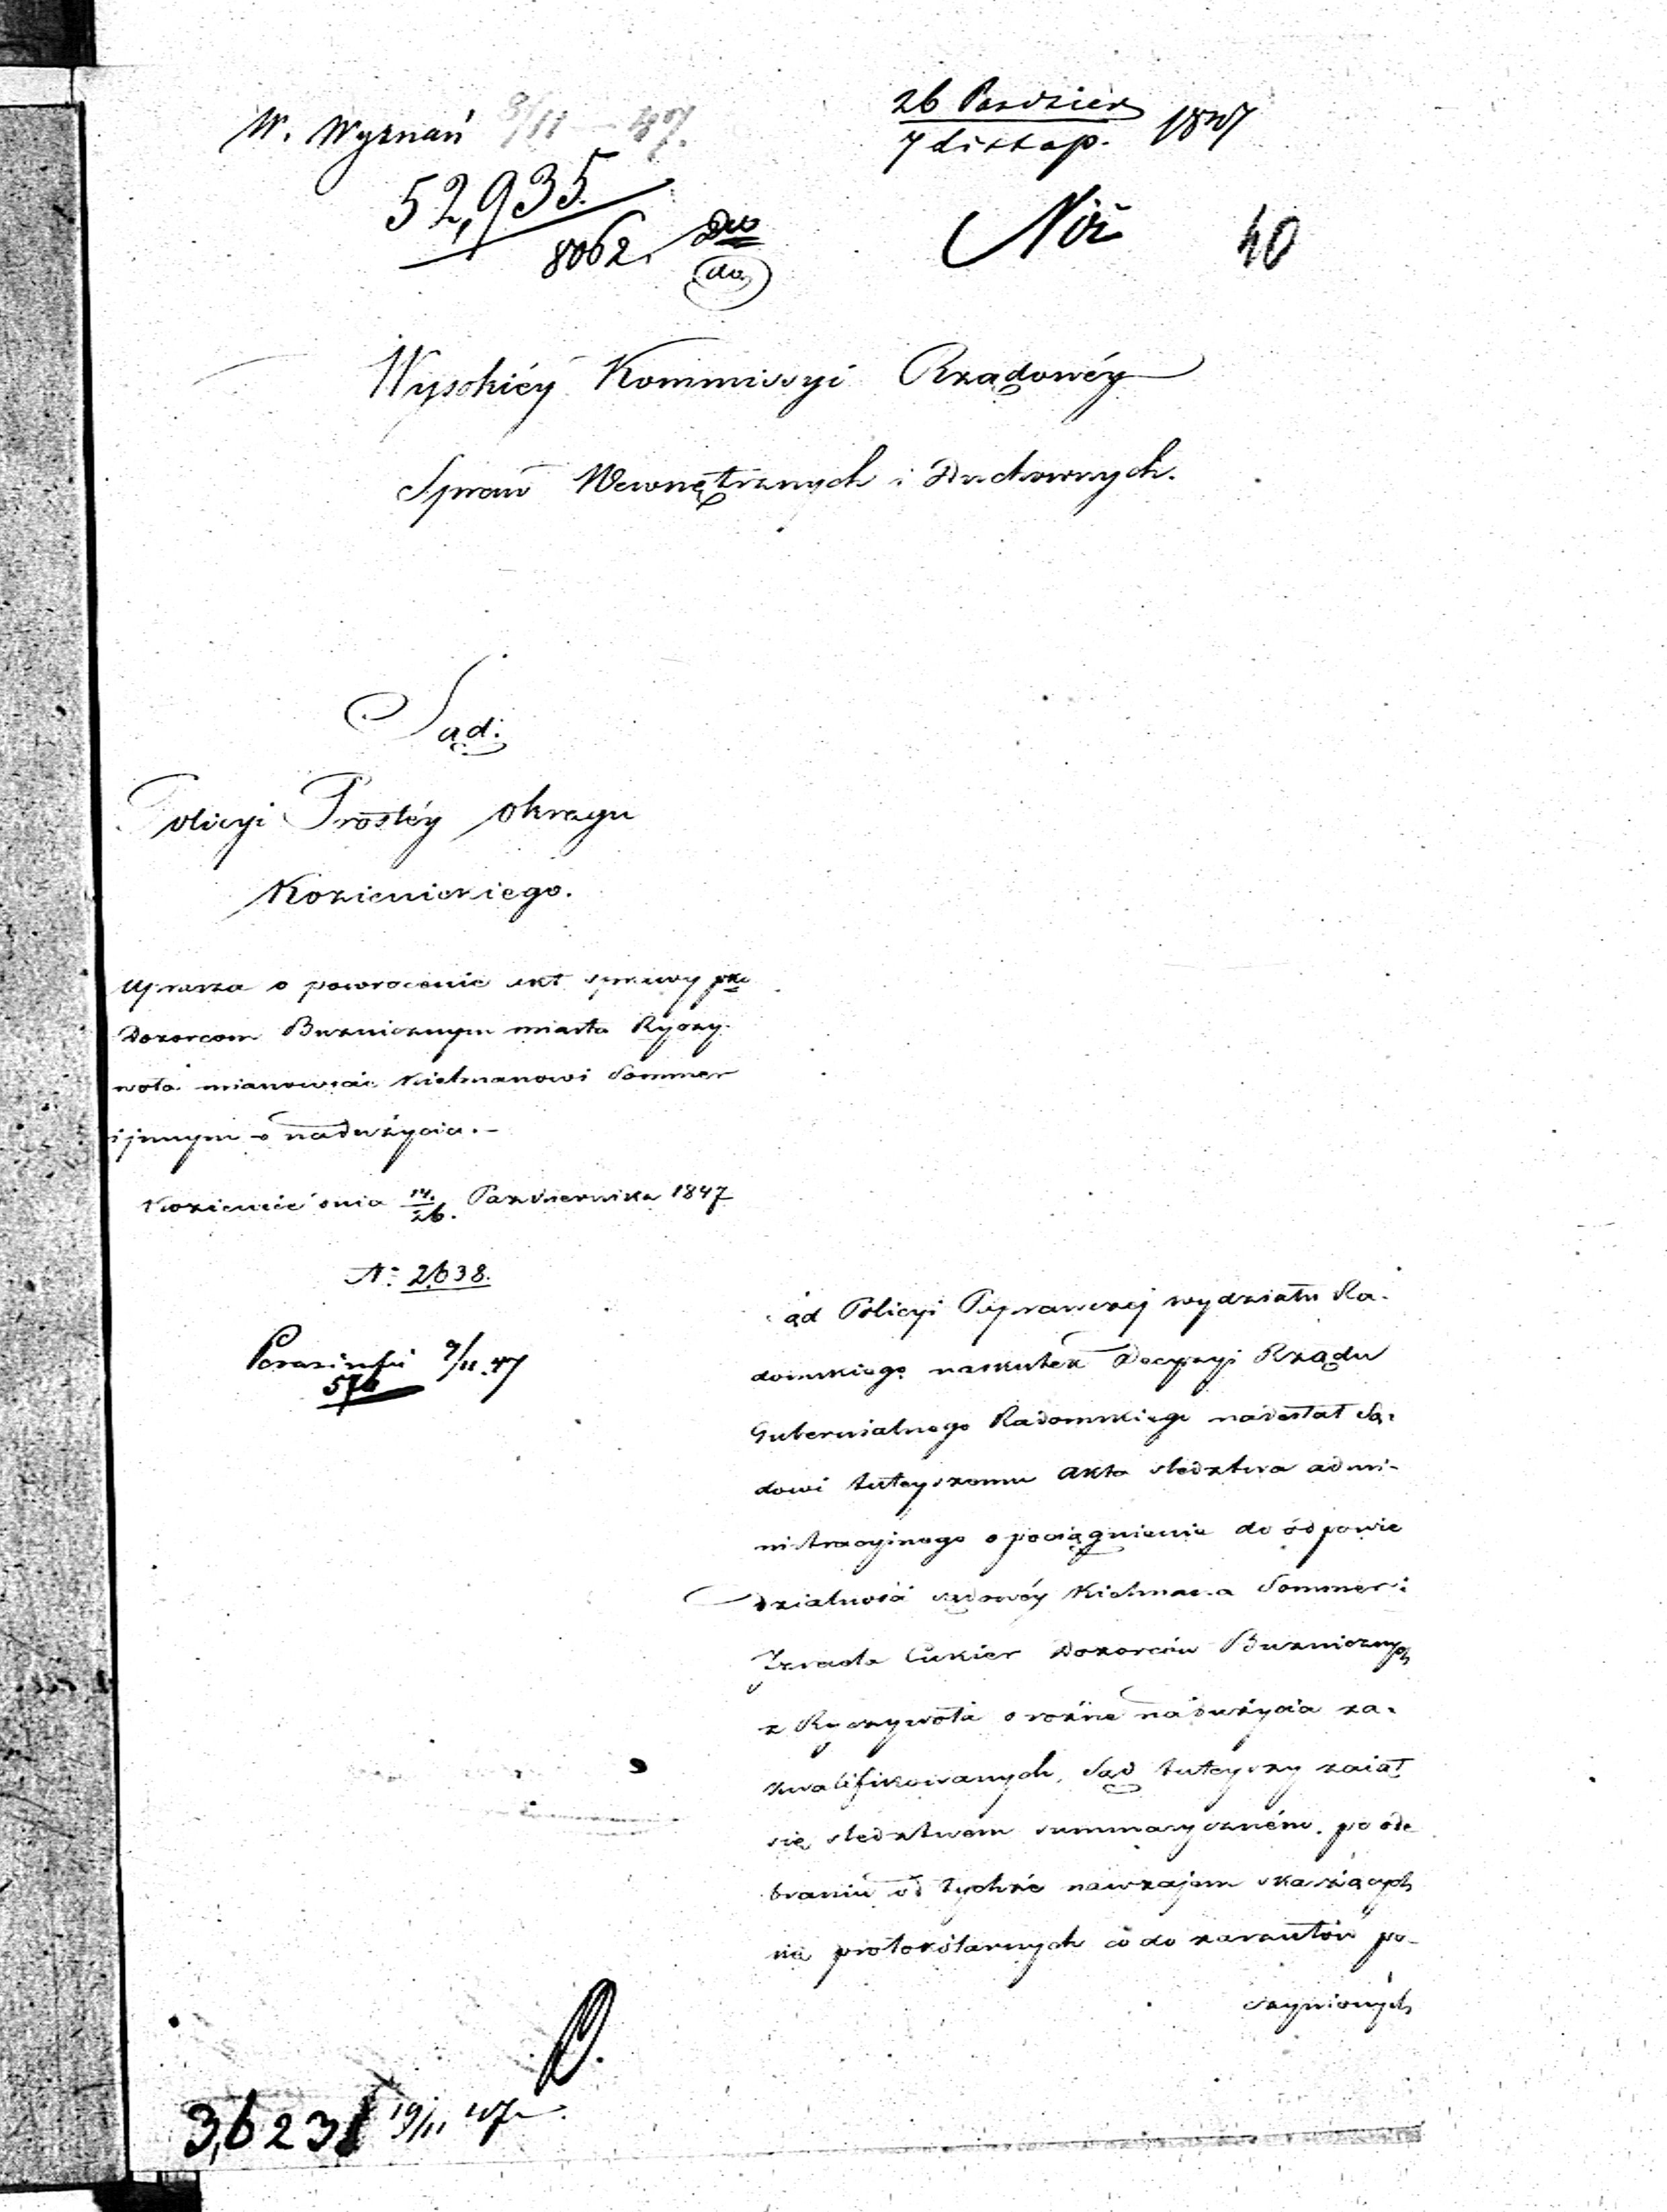 W. Wyznań 8/11 – 47.
26 Paździer
7 Listop. 1847
52,935
8062.
40
Wysokiéy Kommissyi Rządowéy
Spraw Wewnętrznych i Duchownych.
Sąd
Policyi Prostéy Okręgu
Kozienickiego.
Uprasza o powrócenie akt sprawy pko
Dozorcom Bużnicznym miasta Ryczy-
wola mianowicie Kielmanowi Sommer
i jnnym o nadużycia.–
Kozienice dnia 14/26. Października 1847
N: 2638.
9/11.47
ąd Policyi Poprawczej wydziału Ra-
domskiego naskutek Decyzyi Rządu
Gubernialnego Radomskiego nadesłał Są-
dowi tuteyszemu akta śledztwa admi-
nistracyjnego o pociągnienie do odpowie
dzialności sądowéy Kielmana Sommer i
Izraela Cukier Dozorców Bużnicznych
z Ryczywola o różne nadużycia za-
kwalifikowanych, Sąd tuteyszy zaiął
się śledztwem summaryczném, po ode
braniu od tychże nawzajem skarżących
się protokólarnych co do zarzutów po-
czynionych
3,623 19/11 47